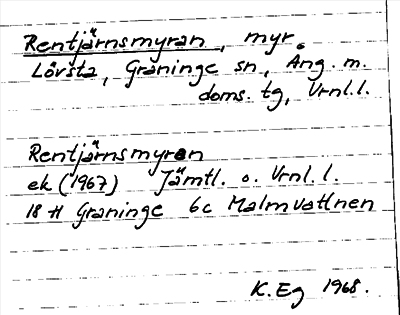 Rentjärnsmyran, myr.
Lövsta, Graninge sn, Ång. m.
doms. tg, Vrnl.l.
Rentjärnsmyran
ek (1967) Jämtl. o. Vrnl.l.
18 H Graninge 6c Malmvattnen
K. Eg 1968.